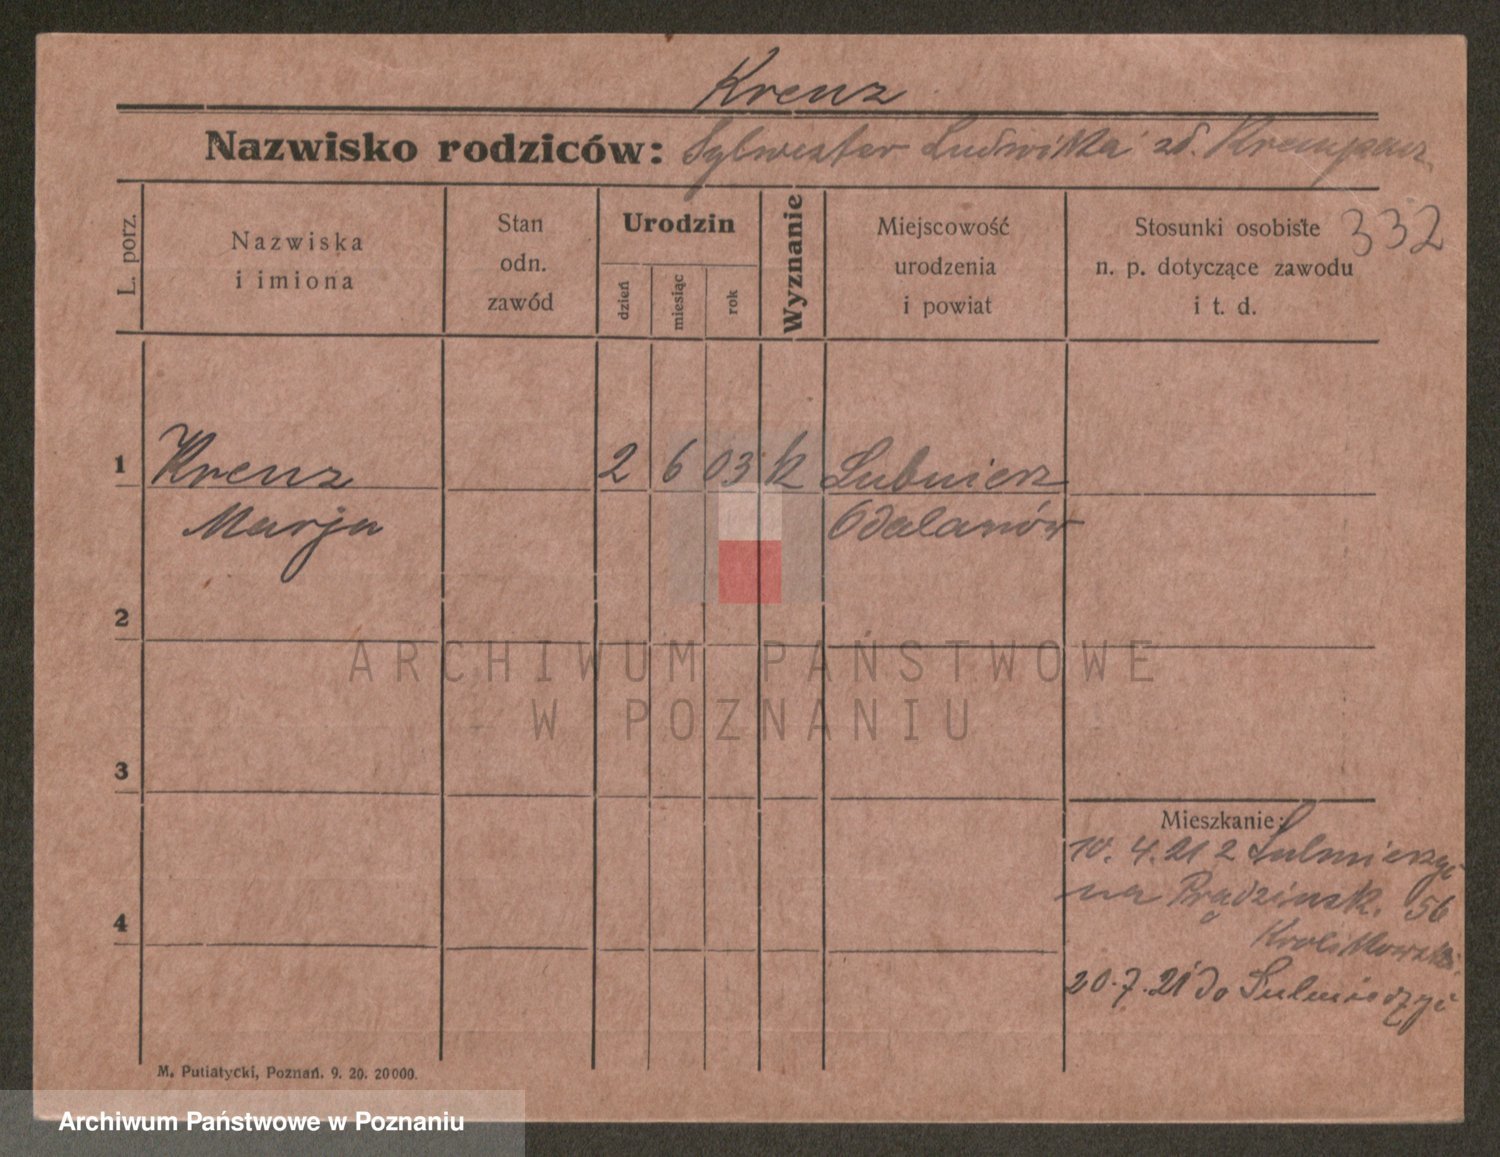 Krenz
Nazwisko rodziców: Sylwester Ludwika zd. Krempacz
332
L. porz.
Nazwiska
i imiona
Stan
odn.
zawód
Urodzin
dzień
miesiąc
rok
Wyznanie
Miejscowość
urodzenia
i powiat
Stosunki osobiste
n. p. dotyczące zawodu
i t. d.
1 Krenz 2 6 03 k
Marja Odalanów
2
ARCHIWUM PAŃSTWOWE
W POZNANIU
3
Mieszkanie:
10. 4. 21 z
na Prądzinsk. 56
4
20. 7. 21 do
M. Putiatycki, Poznań. 9. 20. 20000.
Archiwum Państwowe w Poznaniu